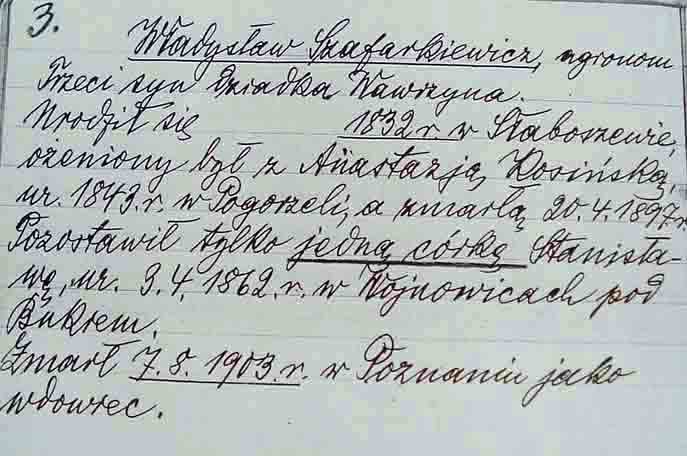 3.
Władysław Szafarkiewicz, agronom
Trzeci syn dziadka Wawrzyna.
Urodził się 1832 r. w Słaboszewie,
ożeniony był z Anastazją Kosińską,
ur. 1843.r. w Pogorzeli, a zmarłą 20.4.1897r.
Pozostawił tylko jedną córkę Stanisła-
wę, ur. 3.4.1862.r. w Wojnowicach pod
Bukiem.
Zmarł 7.8.1903.r. w Poznaniu jako
wdowiec.